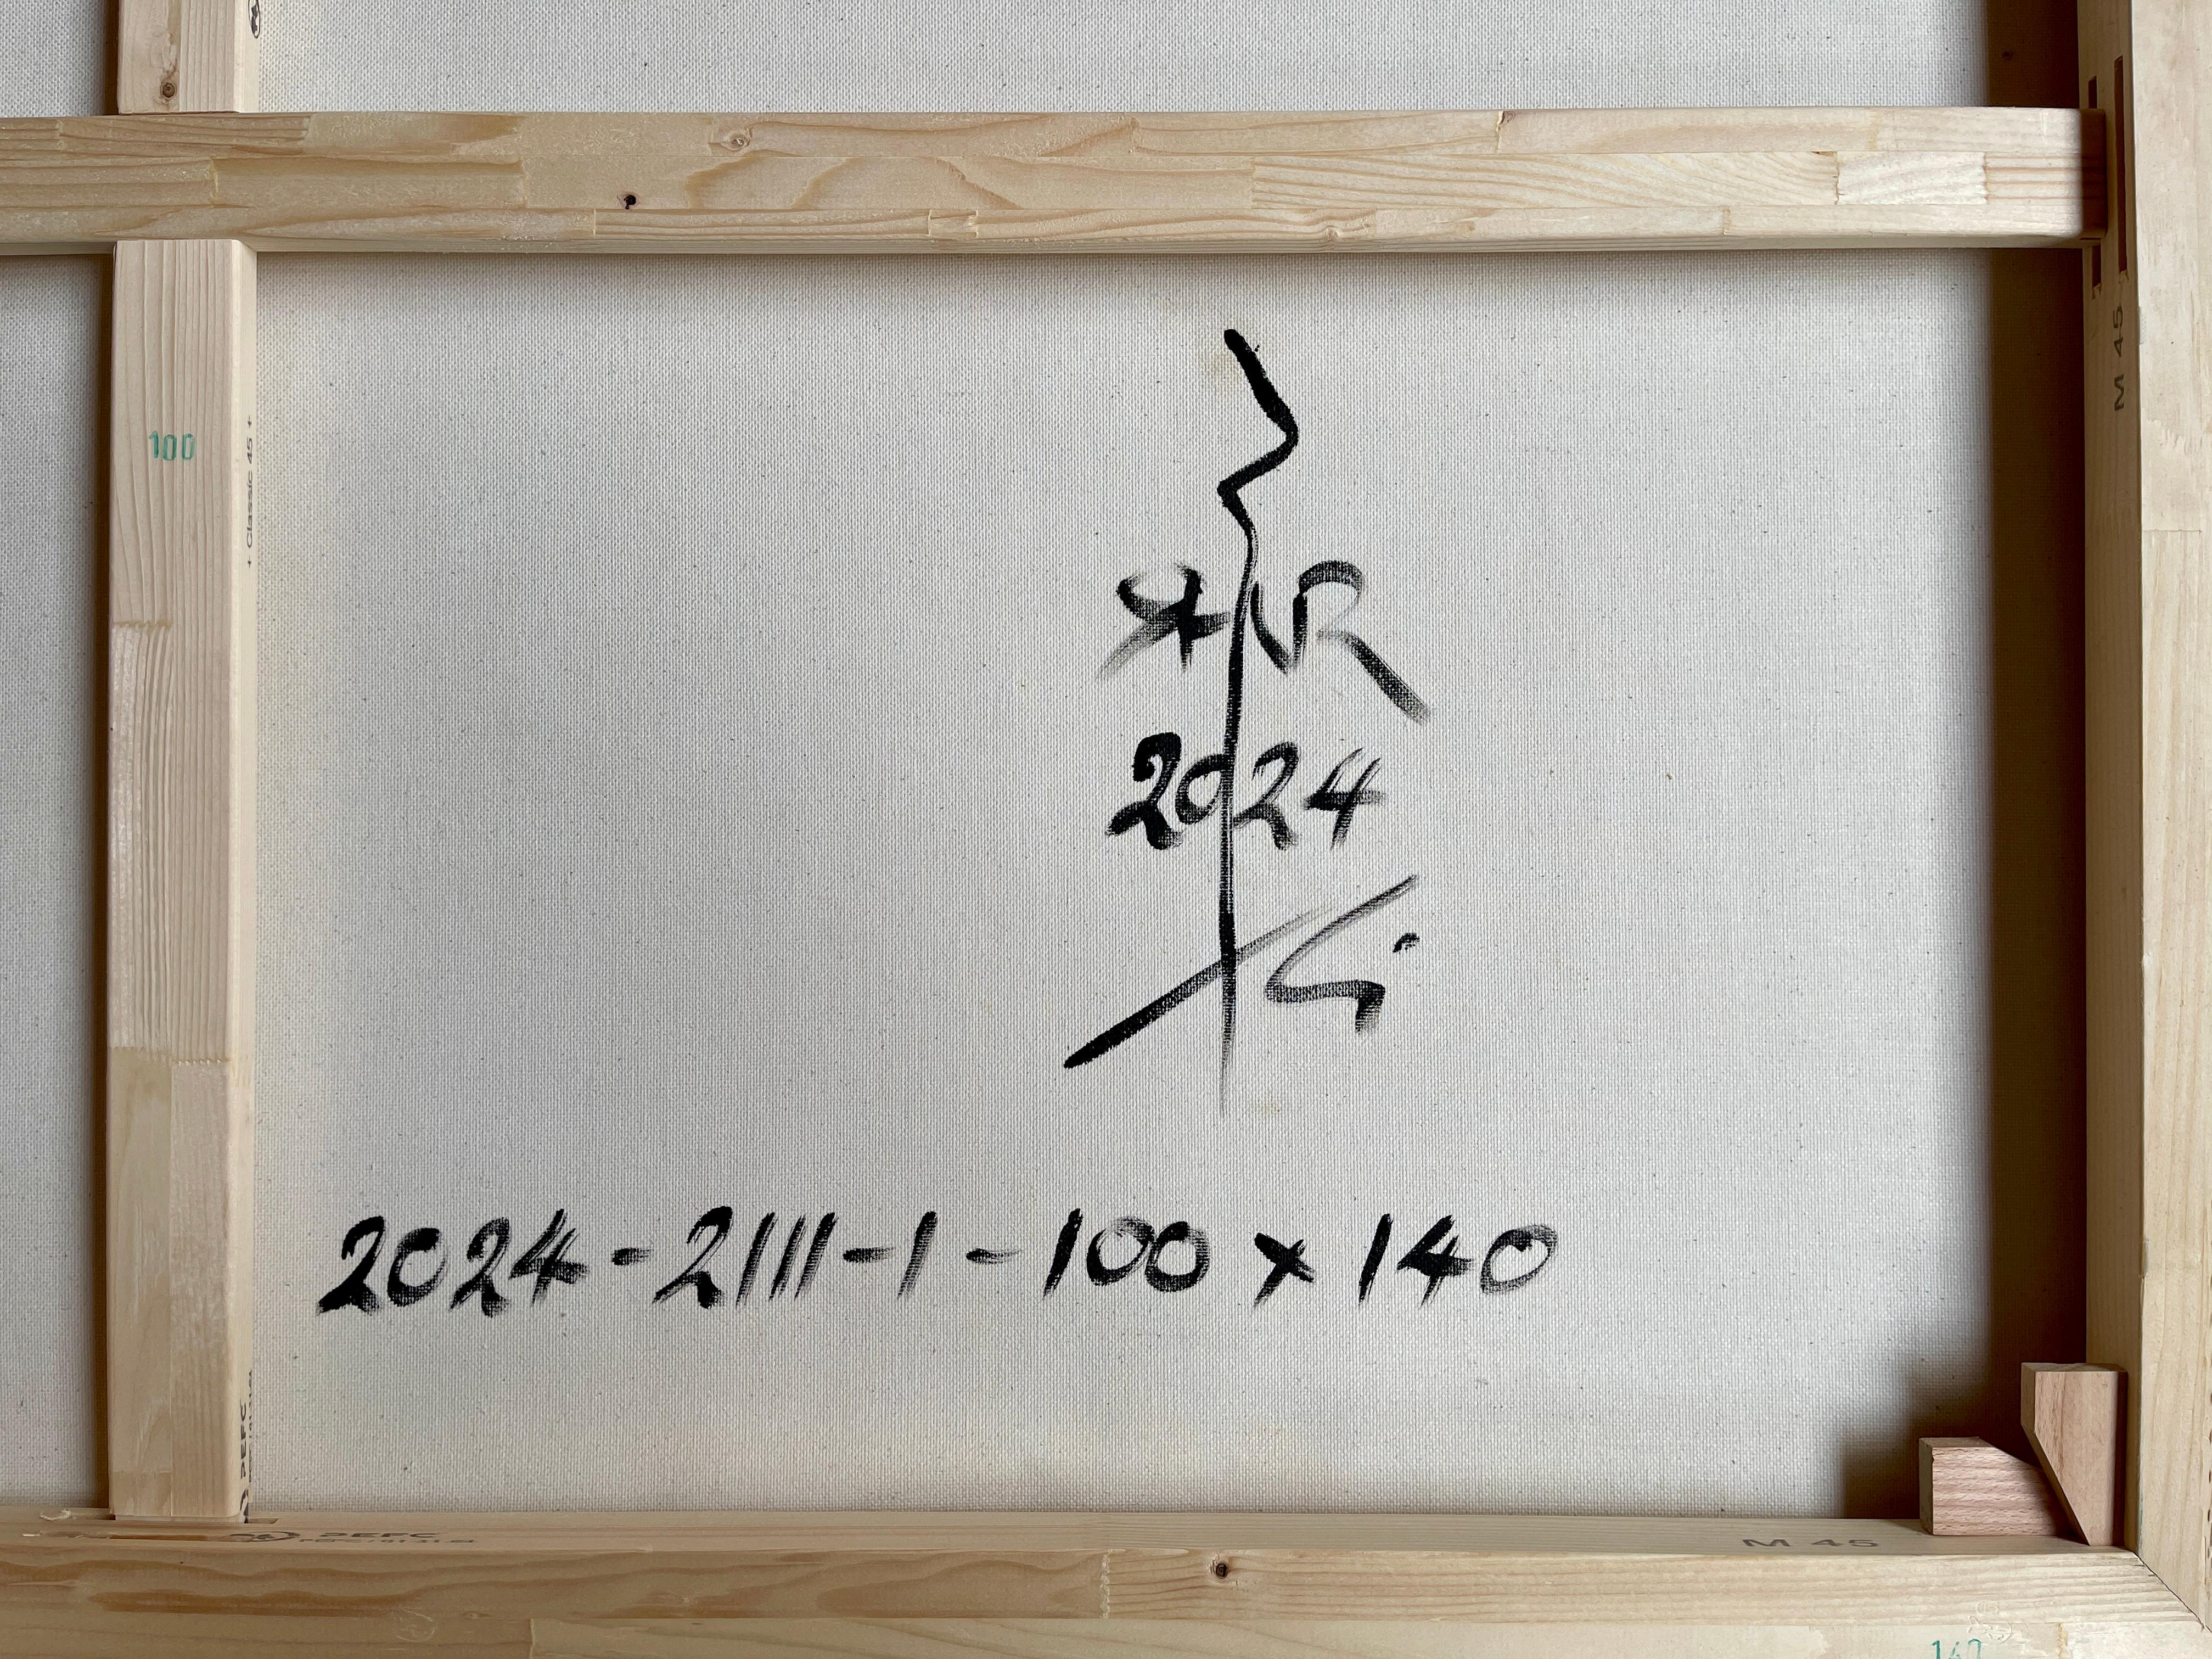 100
+ Classic 45 +
M 45
2024
2024-2111-1-100 x 140
PEFC
PEFC
M 45
140